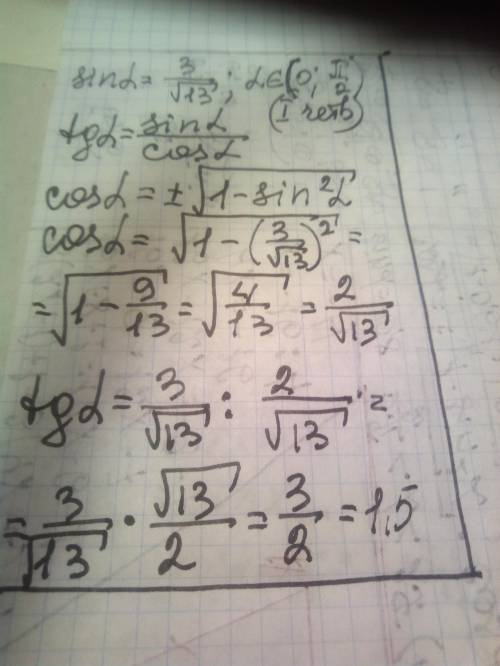 sinα = 3/√13 ; α∈(0; π/2)
(I четв)
tgα = sinα/cosα
cosα = ±√(1-sin²α)
cosα = √(1-(3/√13)²) =
= √(1-9/13) = √(4/13) = 2/√13
tgα = 3/√13 : 2/√13 =
= 3/√13 · √13/2 = 3/2 = 1,5